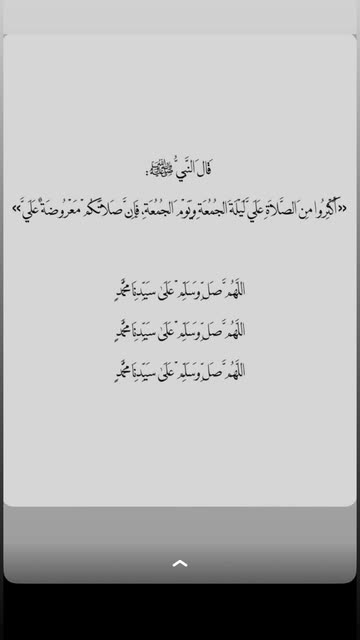 قَالَ النَّبِيُّ ﷺ:
«أَكْثِرُوا مِنَ الصَّلَاةِ عَلَيَّ لَيْلَةَ الجُمُعَةِ وَيَوْمَ الجُمُعَةِ، فَإِنَّ صَلَاتَكُمْ مَعْرُوضَةٌ عَلَيَّ»
اللَّهُمَّ صَلِّ وَسَلِّمْ عَلَىٰ سَيِّدِنَا مُحَمَّدٍ
اللَّهُمَّ صَلِّ وَسَلِّمْ عَلَىٰ سَيِّدِنَا مُحَمَّدٍ
اللَّهُمَّ صَلِّ وَسَلِّمْ عَلَىٰ سَيِّدِنَا مُحَمَّدٍ